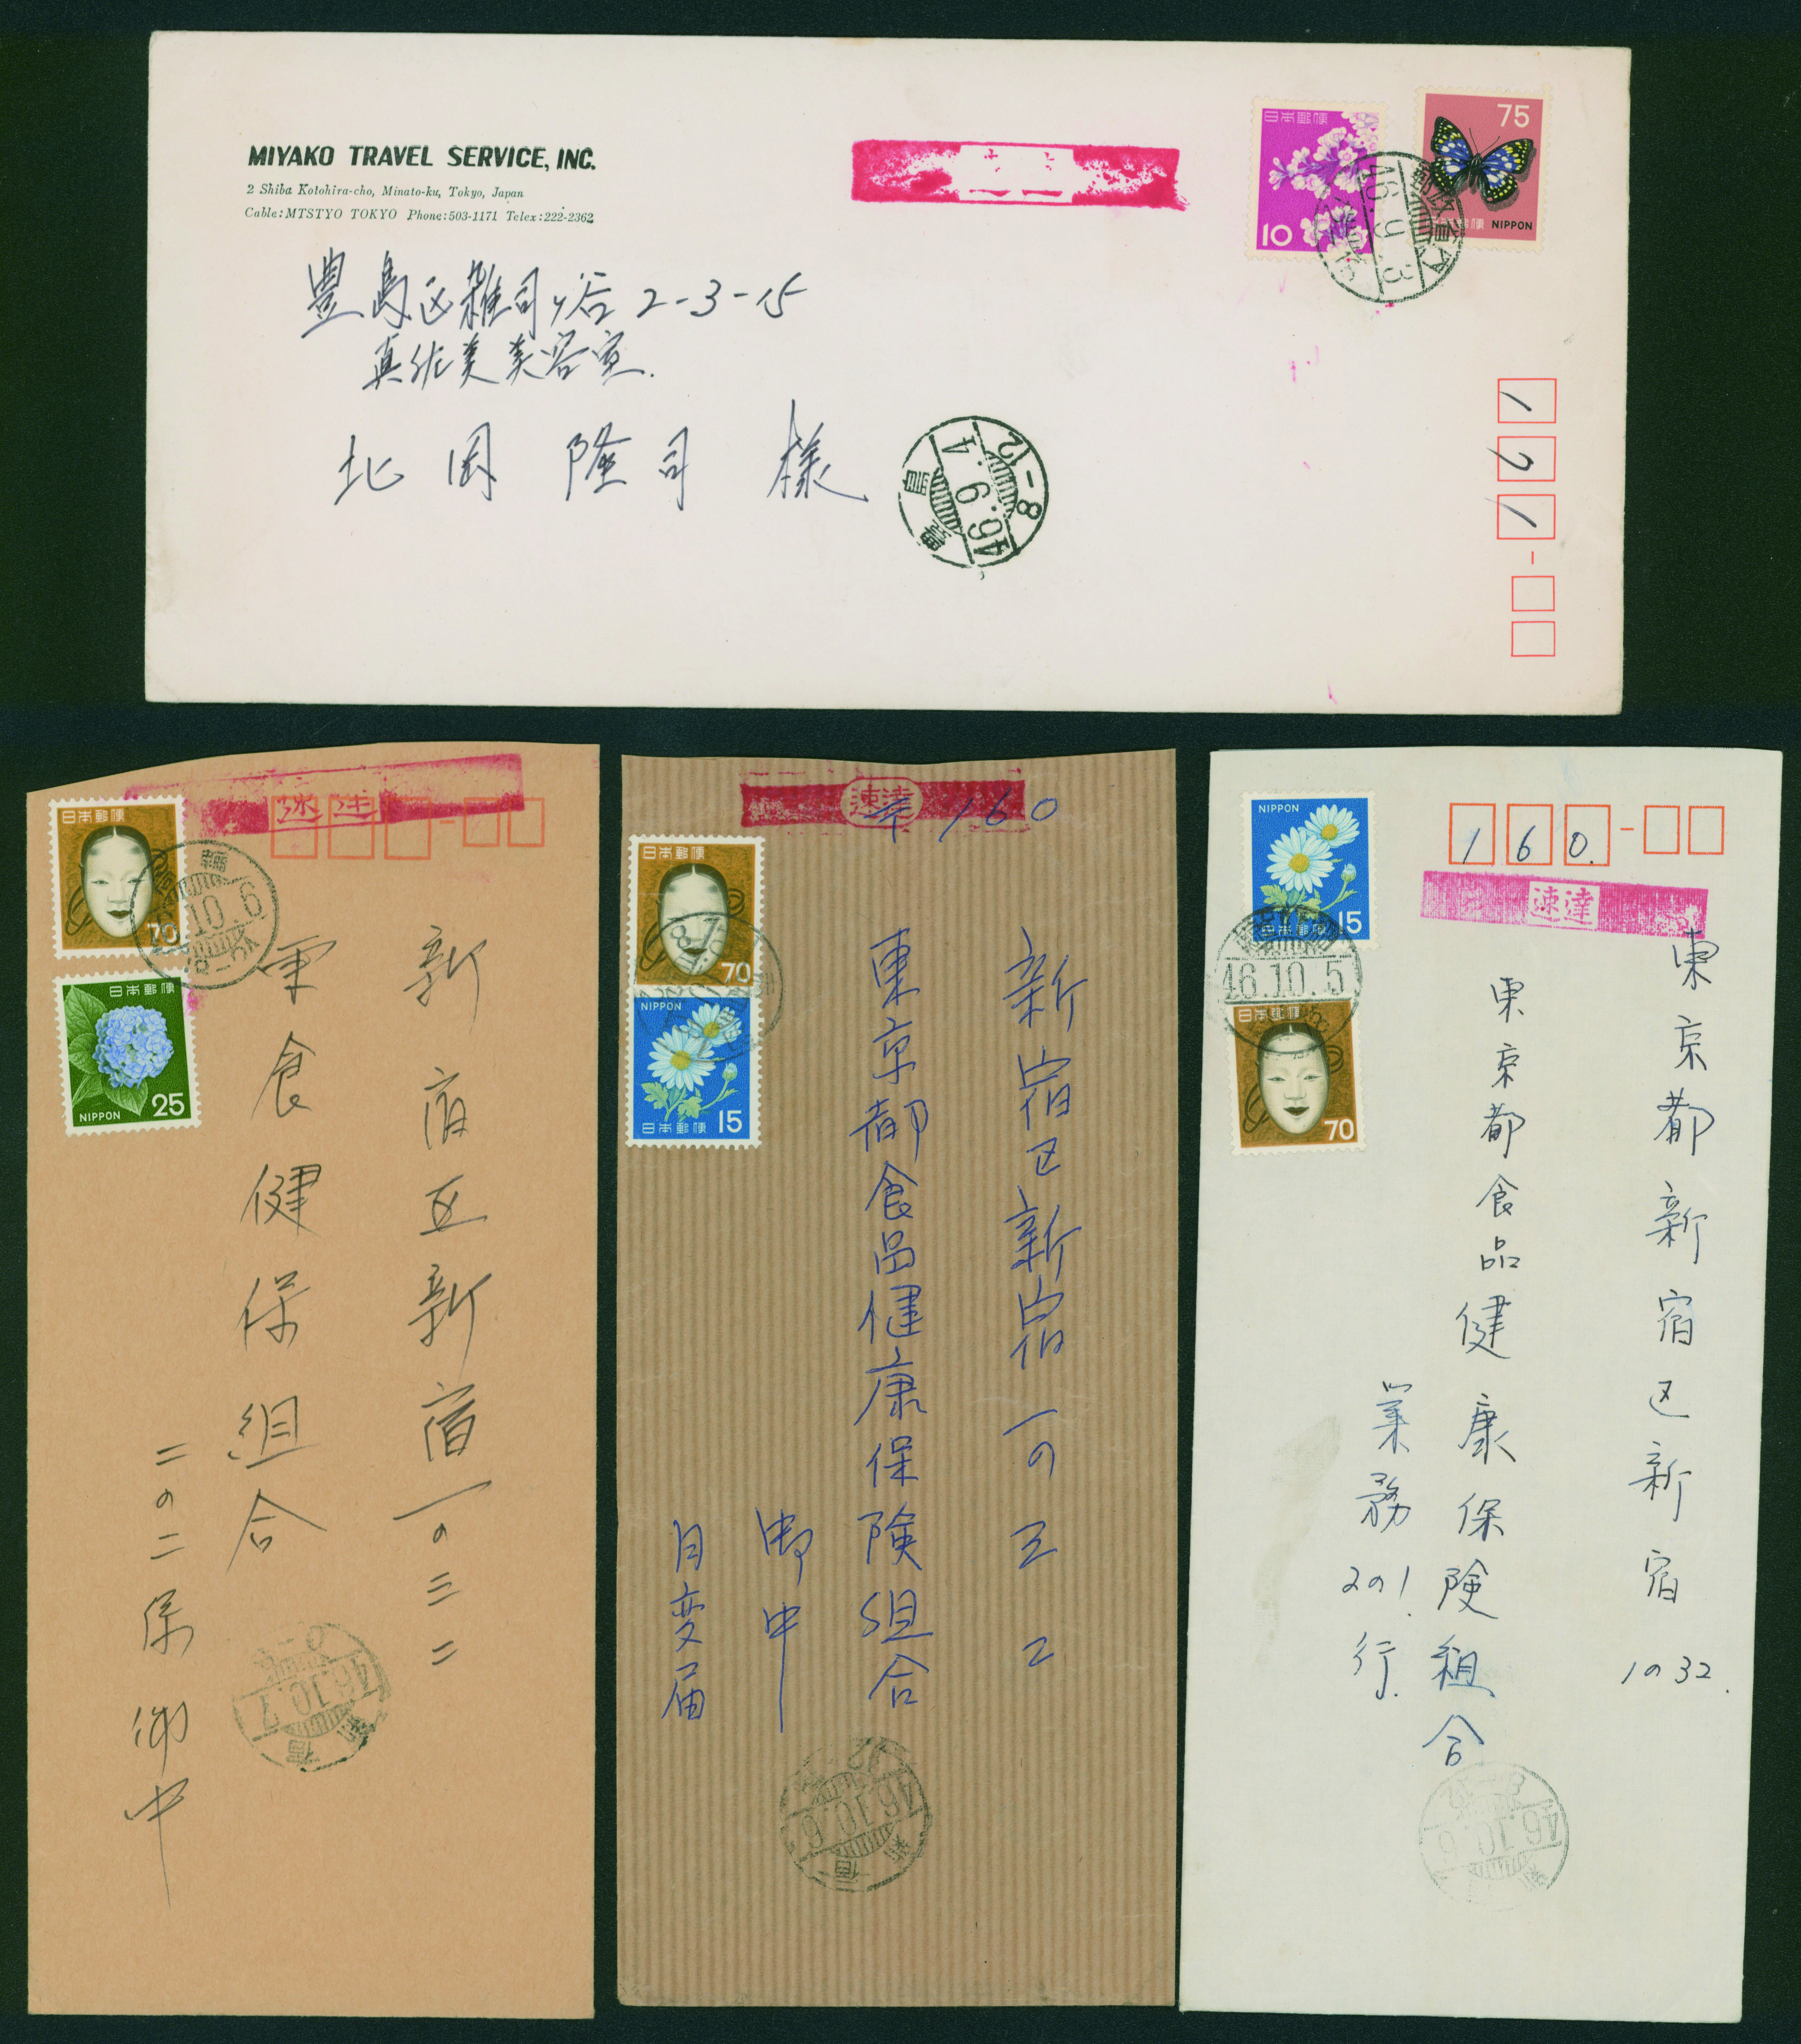 MIYAKO TRAVEL SERVICE, INC.
2 Shiba Kotohira-cho, Minato-ku, Tokyo, Japan
Cable: MTSTYO TOKYO Phone: 503-1171 Telex: 222-2362
日本郵便
10
75
日本郵便 NIPPON
46.9.3
豊島区雑司ヶ谷 2-3-15
真佐美美容室.
北岡 隆司 様
46.9.4
8-12
171
速達
日本郵便
70
日本郵便
NIPPON 25
10.6
新宿区新宿一の三二
東食健保組合
二の二係 御中
46.10.7
新宿
速達
160
日本郵便
70
NIPPON
日本郵便 15
新宿区新宿一の三二
東京都食品健康保険組合
御中
月変届
46.10.6
新宿
NIPPON
15
日本郵便
160.
速達
46.10.5
日本郵便
70
東京都新宿区新宿1の32.
東京都食品健康保険組合
業務2の1.行.
46.10.6
8-12